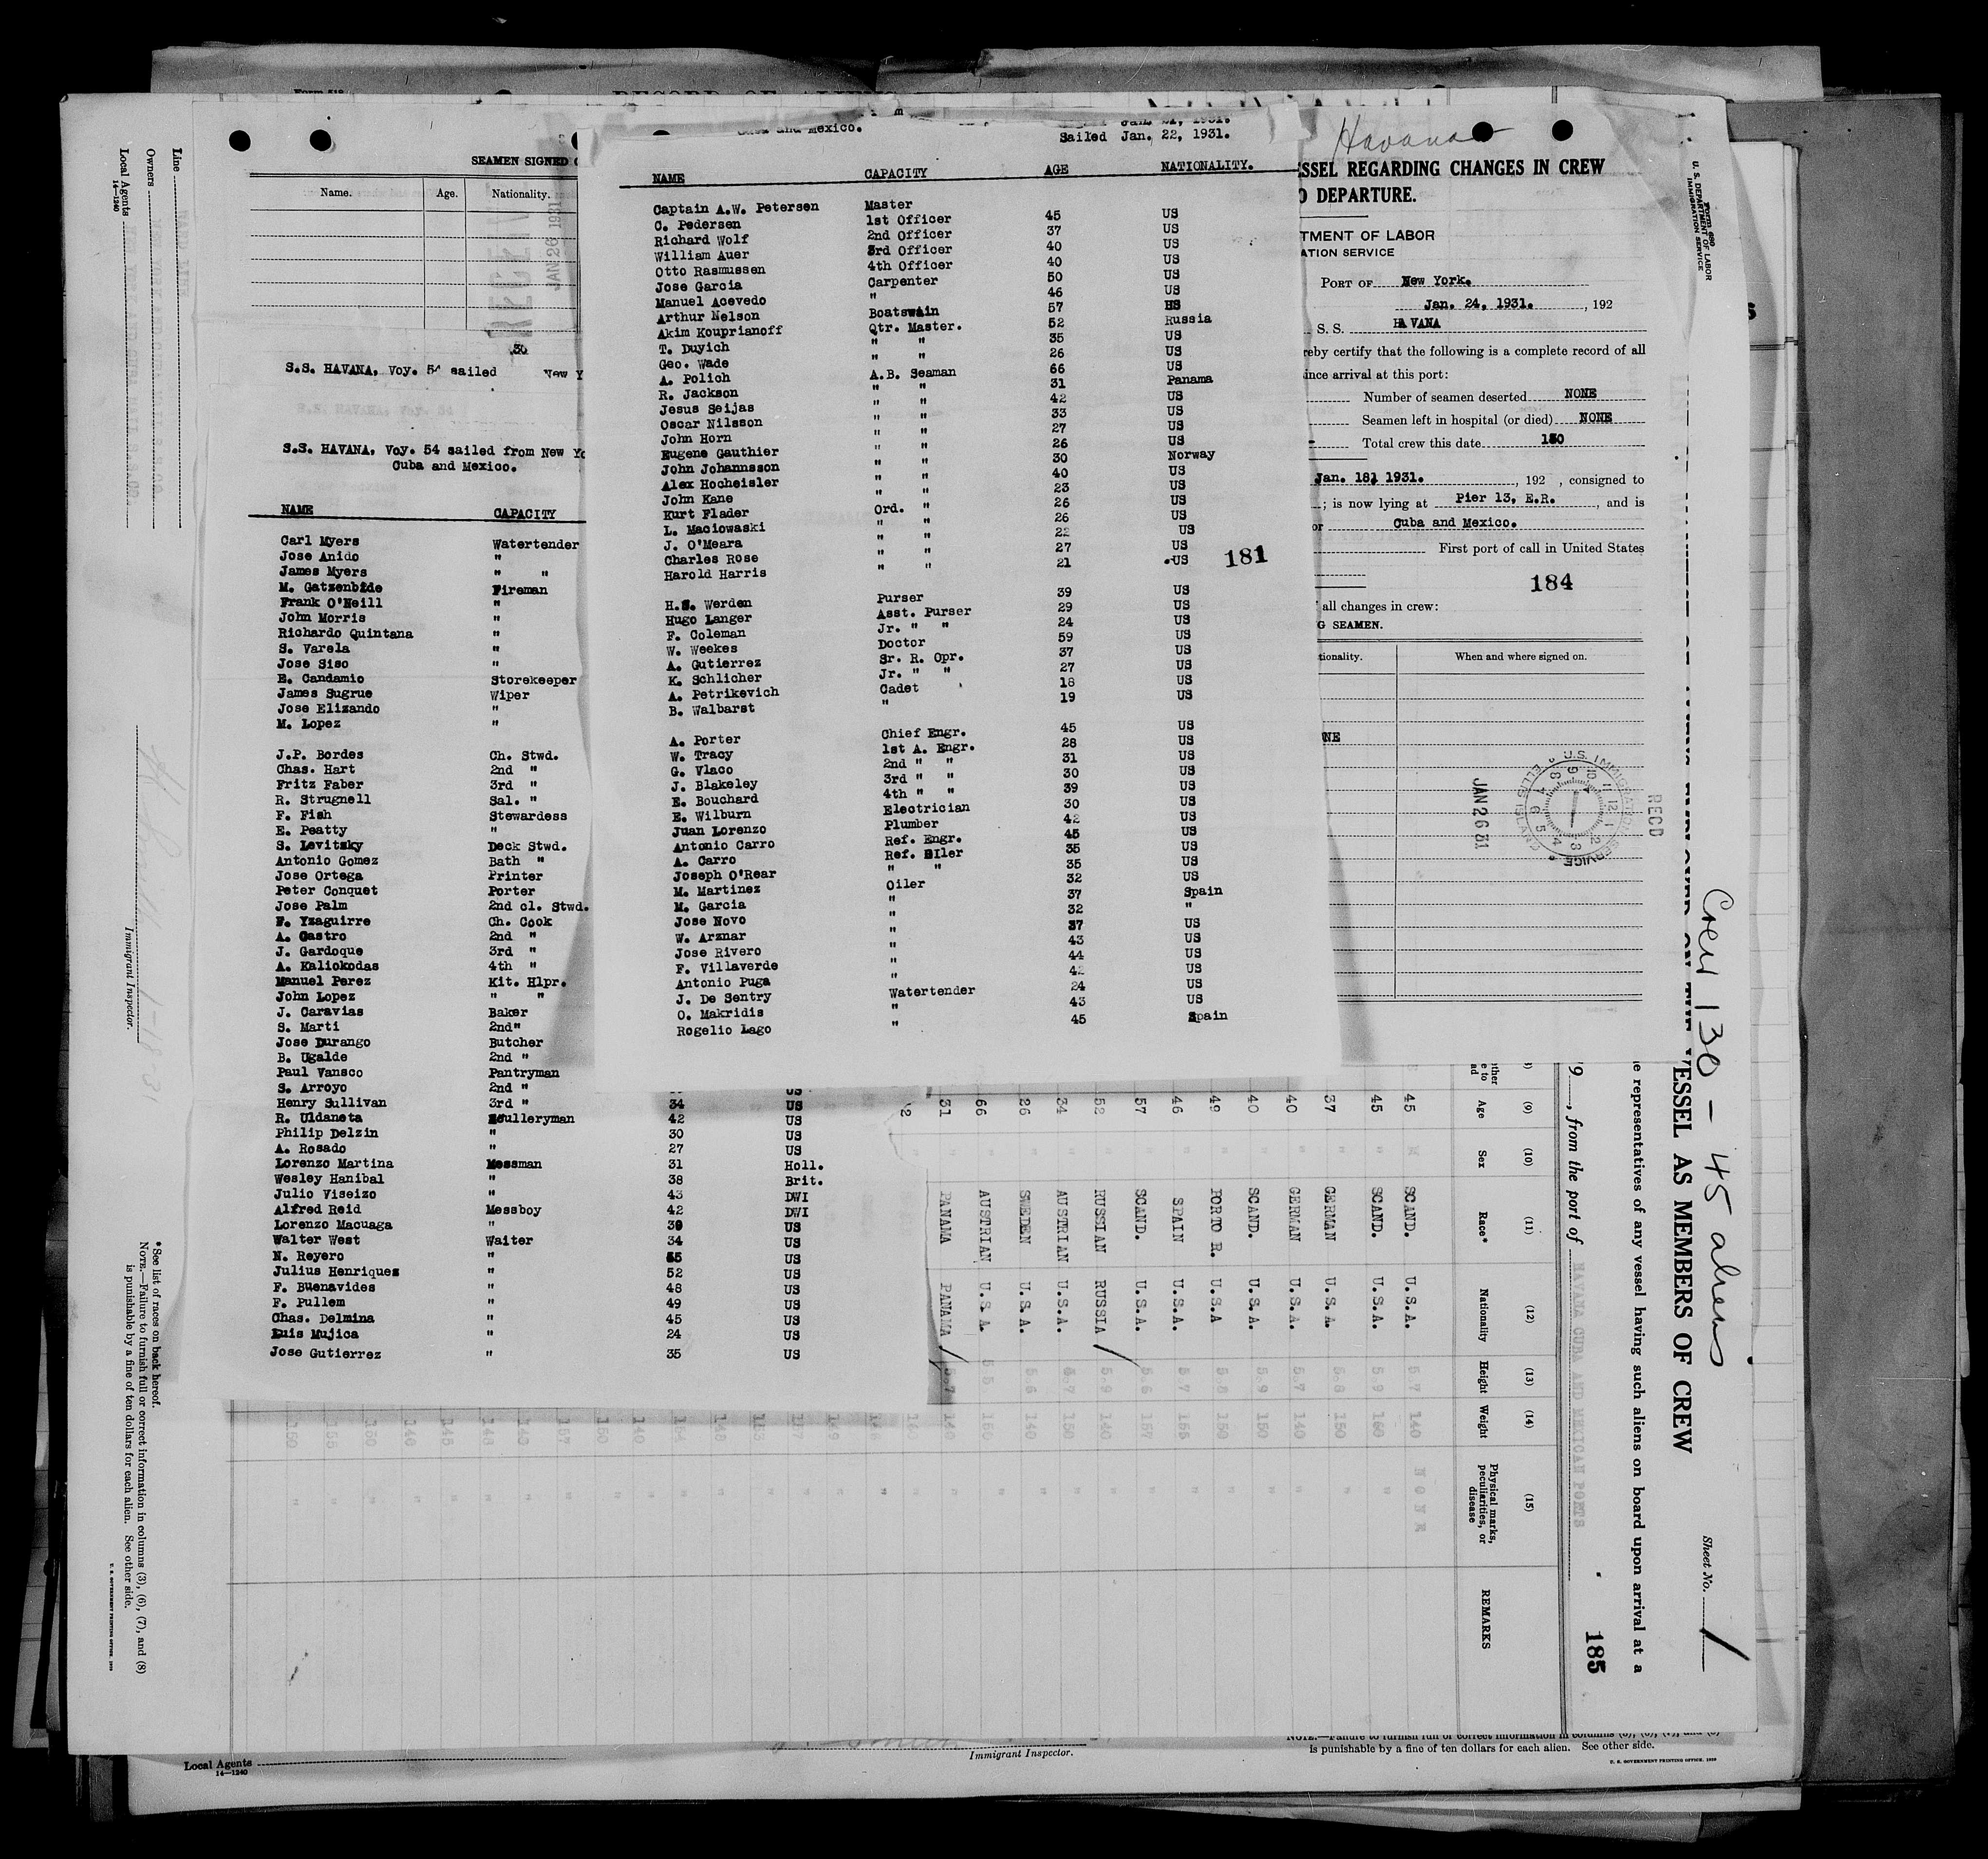 SEAMEN SIGNED
Name. Age. Nationality.
JAN 26 1931
30
S.S. HAVANA, Voy. 54 sailed New Y
S.S. HAVANA, Voy. 54 sailed from New Yo
Cuba and Mexico.
NAME CAPACITY
Carl Myers Watertender
Jose Anido "
James Myers " "
M. Gatzenbide Fireman
Frank O'Neill "
John Morris "
Richardo Quintana "
S. Varela "
Jose Siso "
E. Candamio Storekeeper
James Sugrue Wiper
Jose Elizando "
M. Lopez "
J.P. Bordes Ch. Stwd.
Chas. Hart 2nd "
Fritz Faber 3rd "
R. Strugnell Sal. "
F. Fish Stewardess
E. Peatty "
S. Levitsky Deck Stwd.
Antonio Gomez Bath "
Jose Ortega Printer
Peter Conquet Porter
Jose Palm 2nd cl. Stwd.
F. Yzaguirre Ch. Cook
A. Castro 2nd "
J. Gardoque 3rd "
A. Kaliokodas 4th "
Manuel Perez Kit. Hlpr.
John Lopez " "
J. Caravias Baker
S. Marti 2nd"
Jose Durango Butcher
B. Ugalde 2nd "
Paul Vansco Pantryman
S. Arroyo 2nd " US
Henry Sullivan 3rd " 34 US
R. Uldaneta Sculleryman 42 US
Philip Delzin " 30 US
A. Rosado " 27 US
Lorenzo Martina Messman 31 Holl.
Wesley Hanibal " 38 Brit.
Julio Viseizo " 43 DWI
Alfred Reid Messboy 42 DWI
Lorenzo Macuaga " 39 US
Walter West Waiter 34 US
N. Reyero " 55 US
Julius Henriquez " 52 US
F. Buenavides " 48 US
F. Pullem " 49 US
Chas. Delmina " 45 US
Luis Mujica " 24 US
Jose Gutierrez " 35 US
and Mexico. Jan. 21, 1931.
Sailed Jan. 22, 1931.
NAME CAPACITY AGE NATIONALITY.
Captain A.W. Petersen Master
C. Pedersen 1st Officer 45 US
Richard Wolf 2nd Officer 37 US
William Auer 3rd Officer 40 US
Otto Rasmussen 4th Officer 40 US
Jose Garcia Carpenter 50 US
Manuel Acevedo " 46 US
Arthur Nelson Boatswain 57 US
Akim Kouprianoff Qtr. Master. 52 Russia
T. Duyich " " 35 US
Geo. Wade " " 26 US
A. Polich A.B. Seaman 66 US
R. Jackson " " 31 Panama
Jesus Seijas " " 42 US
Oscar Nilsson " " 33 US
John Horn " " 27 US
Eugene Gauthier " " 26 US
John Johannsson " " 30 Norway
Alex Hocheisler " " 40 US
John Kane " " 23 US
Kurt Flader Ord. " 26 US
L. Maciowaski " " 26 US
J. O'Meara " " 22 US
Charles Rose " " 27 US
Harold Harris " " 21 US 181
H.S. Werden Purser 39 US
Hugo Langer Asst. Purser 29 US
F. Coleman Jr. " " 24 US
W. Weekes Doctor 59 US
A. Gutierrez Sr. R. Opr. 37 US
K. Schlicher Jr. " " 27 US
A. Petrikevich Cadet 18 US
B. Walbarst " 19 US
A. Porter Chief Engr. 45 US
W. Tracy 1st A. Engr. 28 US
G. Vlaco 2nd " " 31 US
J. Blakeley 3rd " " 30 US
E. Bouchard 4th " " 39 US
E. Wilburn Electrician 30 US
Juan Lorenzo Plumber 42 US
Antonio Carro Ref. Engr. 45 US
A. Carro Ref. Oiler 35 US
Joseph O'Rear " " 35 US
M. Martinez Oiler 32 US
M. Garcia " 37 Spain
Jose Novo " 32 "
W. Arznar " 37 US
Jose Rivero " 43 US
F. Villaverde " 44 US
Antonio Puga " 42 US
J. De Sentry Watertender 24 US
O. Makridis " 43 US
Rogelio Lago " 45 Spain
Havana
SSEL REGARDING CHANGES IN CREW
O DEPARTURE.
TMENT OF LABOR
ATION SERVICE
PORT OF New York.
Jan. 24, 1931. , 192
S. S. HAVANA
reby certify that the following is a complete record of all
since arrival at this port:
Number of seamen deserted NONE
Seamen left in hospital (or died) NONE
Total crew this date 130
Jan. 18, 1931. , 192 , consigned to
; is now lying at Pier 13, E.R. , and is
or Cuba and Mexico.
First port of call in United States
184
all changes in crew:
G SEAMEN.
tionality. When and where signed on.
NE
JAN 26 31
U.S. IMMIGRATION SERVICE ELLIS ISLAND
RECD
Form 680
U. S. DEPARTMENT OF LABOR
IMMIGRATION SERVICE
Crew 130 - 45 aliens
Sheet No. 1
VESSEL AS MEMBERS OF CREW
e representatives of any vessel having such aliens on board upon arrival at a
9 , from the port of HAVANA CUBA AND MEXICAN PORTS
185
(9) (10) (11) (12) (13) (14) (15)
Age Sex Race* Nationality Height Weight Physical marks, peculiarities, or disease REMARKS
45 M SCAND. U.S.A. 5.7 140 NONE
45 " SCAND. U.S.A. 5.9 160 "
37 " GERMAN U.S.A. 5.8 150 "
40 " GERMAN U.S.A. 5.7 140 "
40 " SCAND. U.S.A. 5.9 150 "
49 " PORTO R. U.S.A 5.8 150 "
46 " SPAIN U.S.A. 5.7 155 "
57 " SCAND. U.S.A. 5.6 157 "
52 " RUSSIAN RUSSIA 5.9 140 "
34 " AUSTRIAN U.S.A. 5.7 150 "
26 " SWEDEN U.S.A. 5.6 140 "
66 " AUSTRIAN U.S.A. 5.5 160 "
31 " PANAMA PANAMA 5.7 140 "
Line
Owners
Local Agents
14—1240
Immigrant Inspector.
1-18-31
* See list of races on back hereof.
NOTE.—Failure to furnish full or correct information in columns (3), (6), (7), and (8)
is punishable by a fine of ten dollars for each alien. See other side.
U. S. GOVERNMENT PRINTING OFFICE. 1929
Local Agents
14—1240
Immigrant Inspector.
NOTE.—Failure to furnish full or correct information in columns (3), (6), (7), and (8)
is punishable by a fine of ten dollars for each alien. See other side.
U. S. GOVERNMENT PRINTING OFFICE. 1929